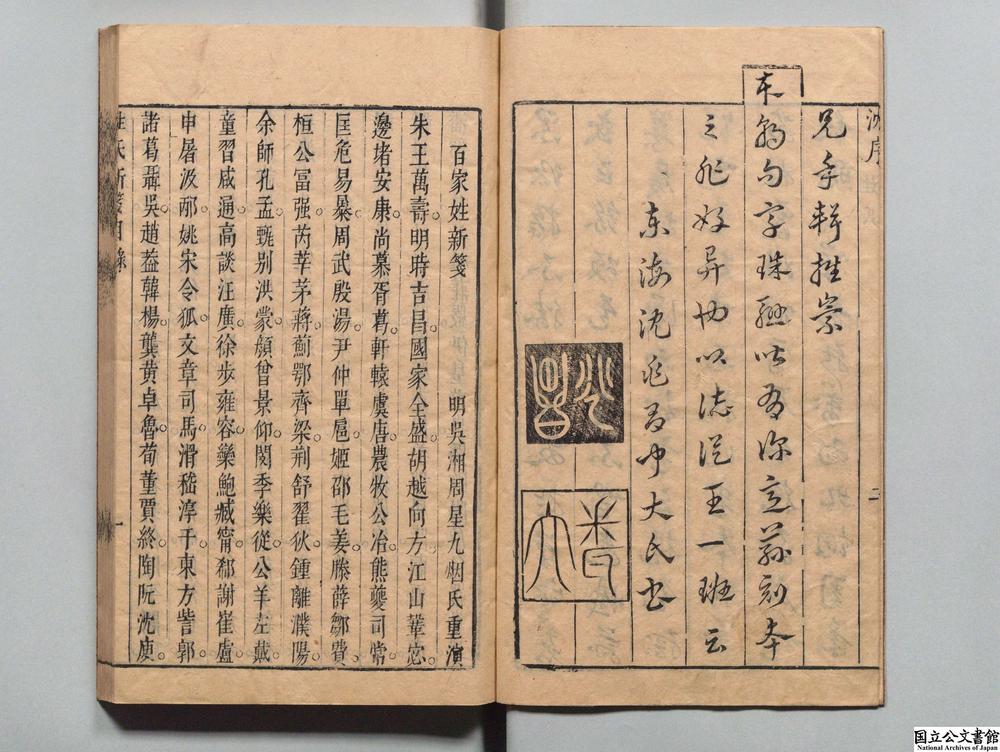 沈序 二
兄手輯推崇
本朝句字珠聯
刻本
之非好異也以誌從王一班云
東海沈兆昌中大氏書
兆昌
百家姓新箋 明吳湘周星九烟氏重演
朱王萬壽。明時吉昌。國家全盛。胡越向方。江山鞏宓。
邊堵安康。尚慕胥葛。軒轅虞唐。農牧公冶。熊夔司常。
匡危易暴。周武殷湯。尹仲單扈。姬邵毛姜。滕薛鄒費。
桓公富强。芮莘茅蔣。薊鄂齊梁。荊舒翟狄。鍾離濮陽。
余師孔孟。甄别洪蒙。顏曾景仰。閔季樂從。公羊左戴。
童習咸通。高談汪廣。徐步雍容。欒鮑臧甯。郗謝崔盧。
申屠汲邴。姚宋令狐。文章司馬。滑嵇淳于。東方訾郭。
諸葛聶吳。趙益韓楊。龔黄卓魯。荀董賈終。陶阮沈庾。
姓氏新箋目錄 一
国立公文書館
National Archives of Japan